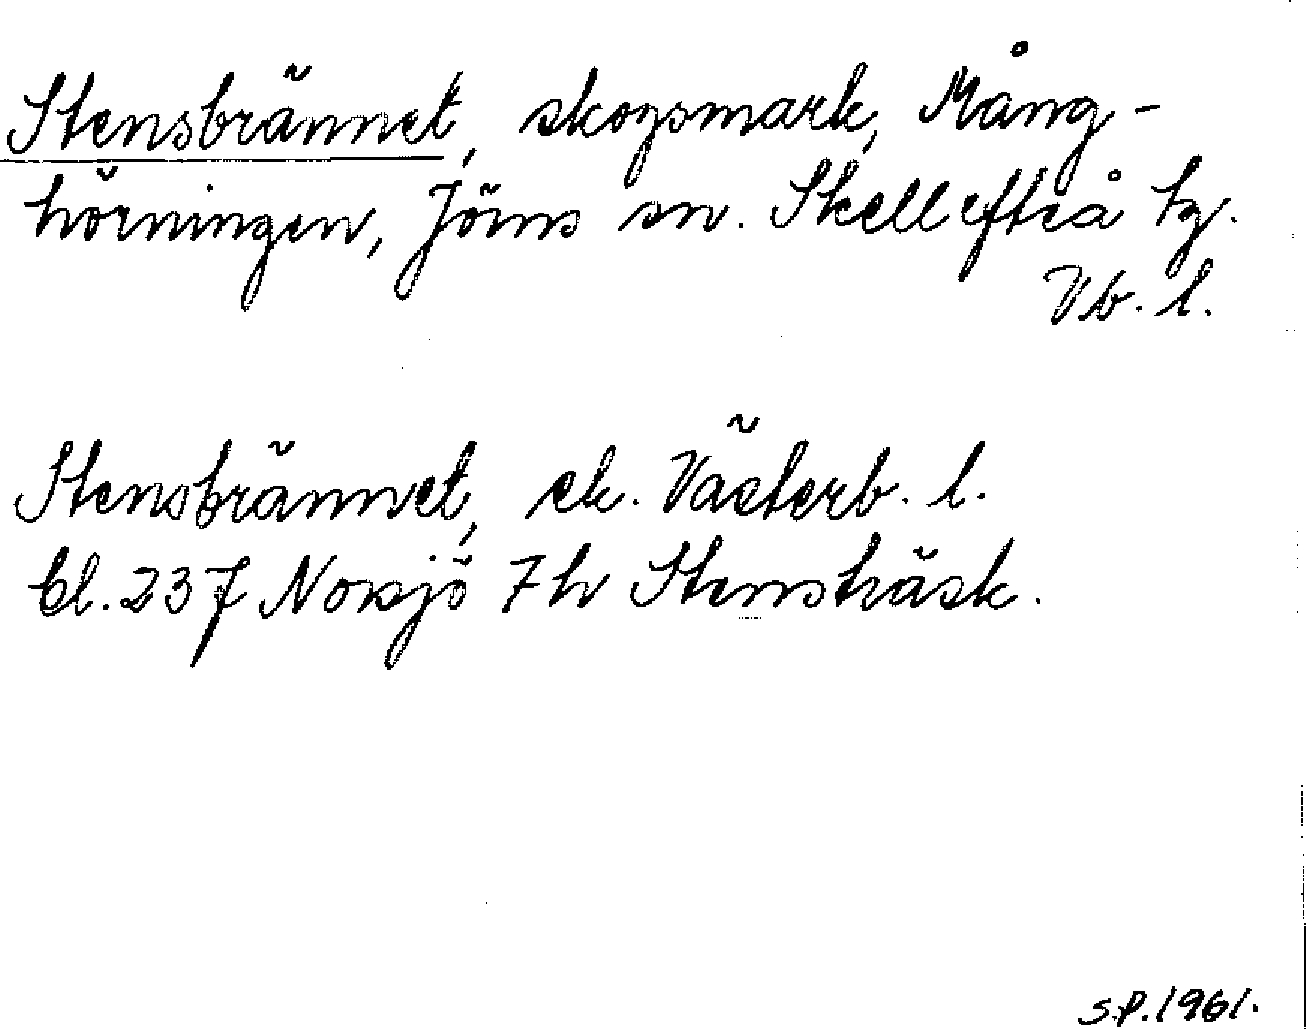 Stensbrännet, skogsmark, Mång-
hörningen, Jörns sn. Skellefteå tg.
Vb. l.
Stensbrännet, ek. Västerb. l.
bl. 237 Norsjö 7h Stensträsk.
S.P. 1961.